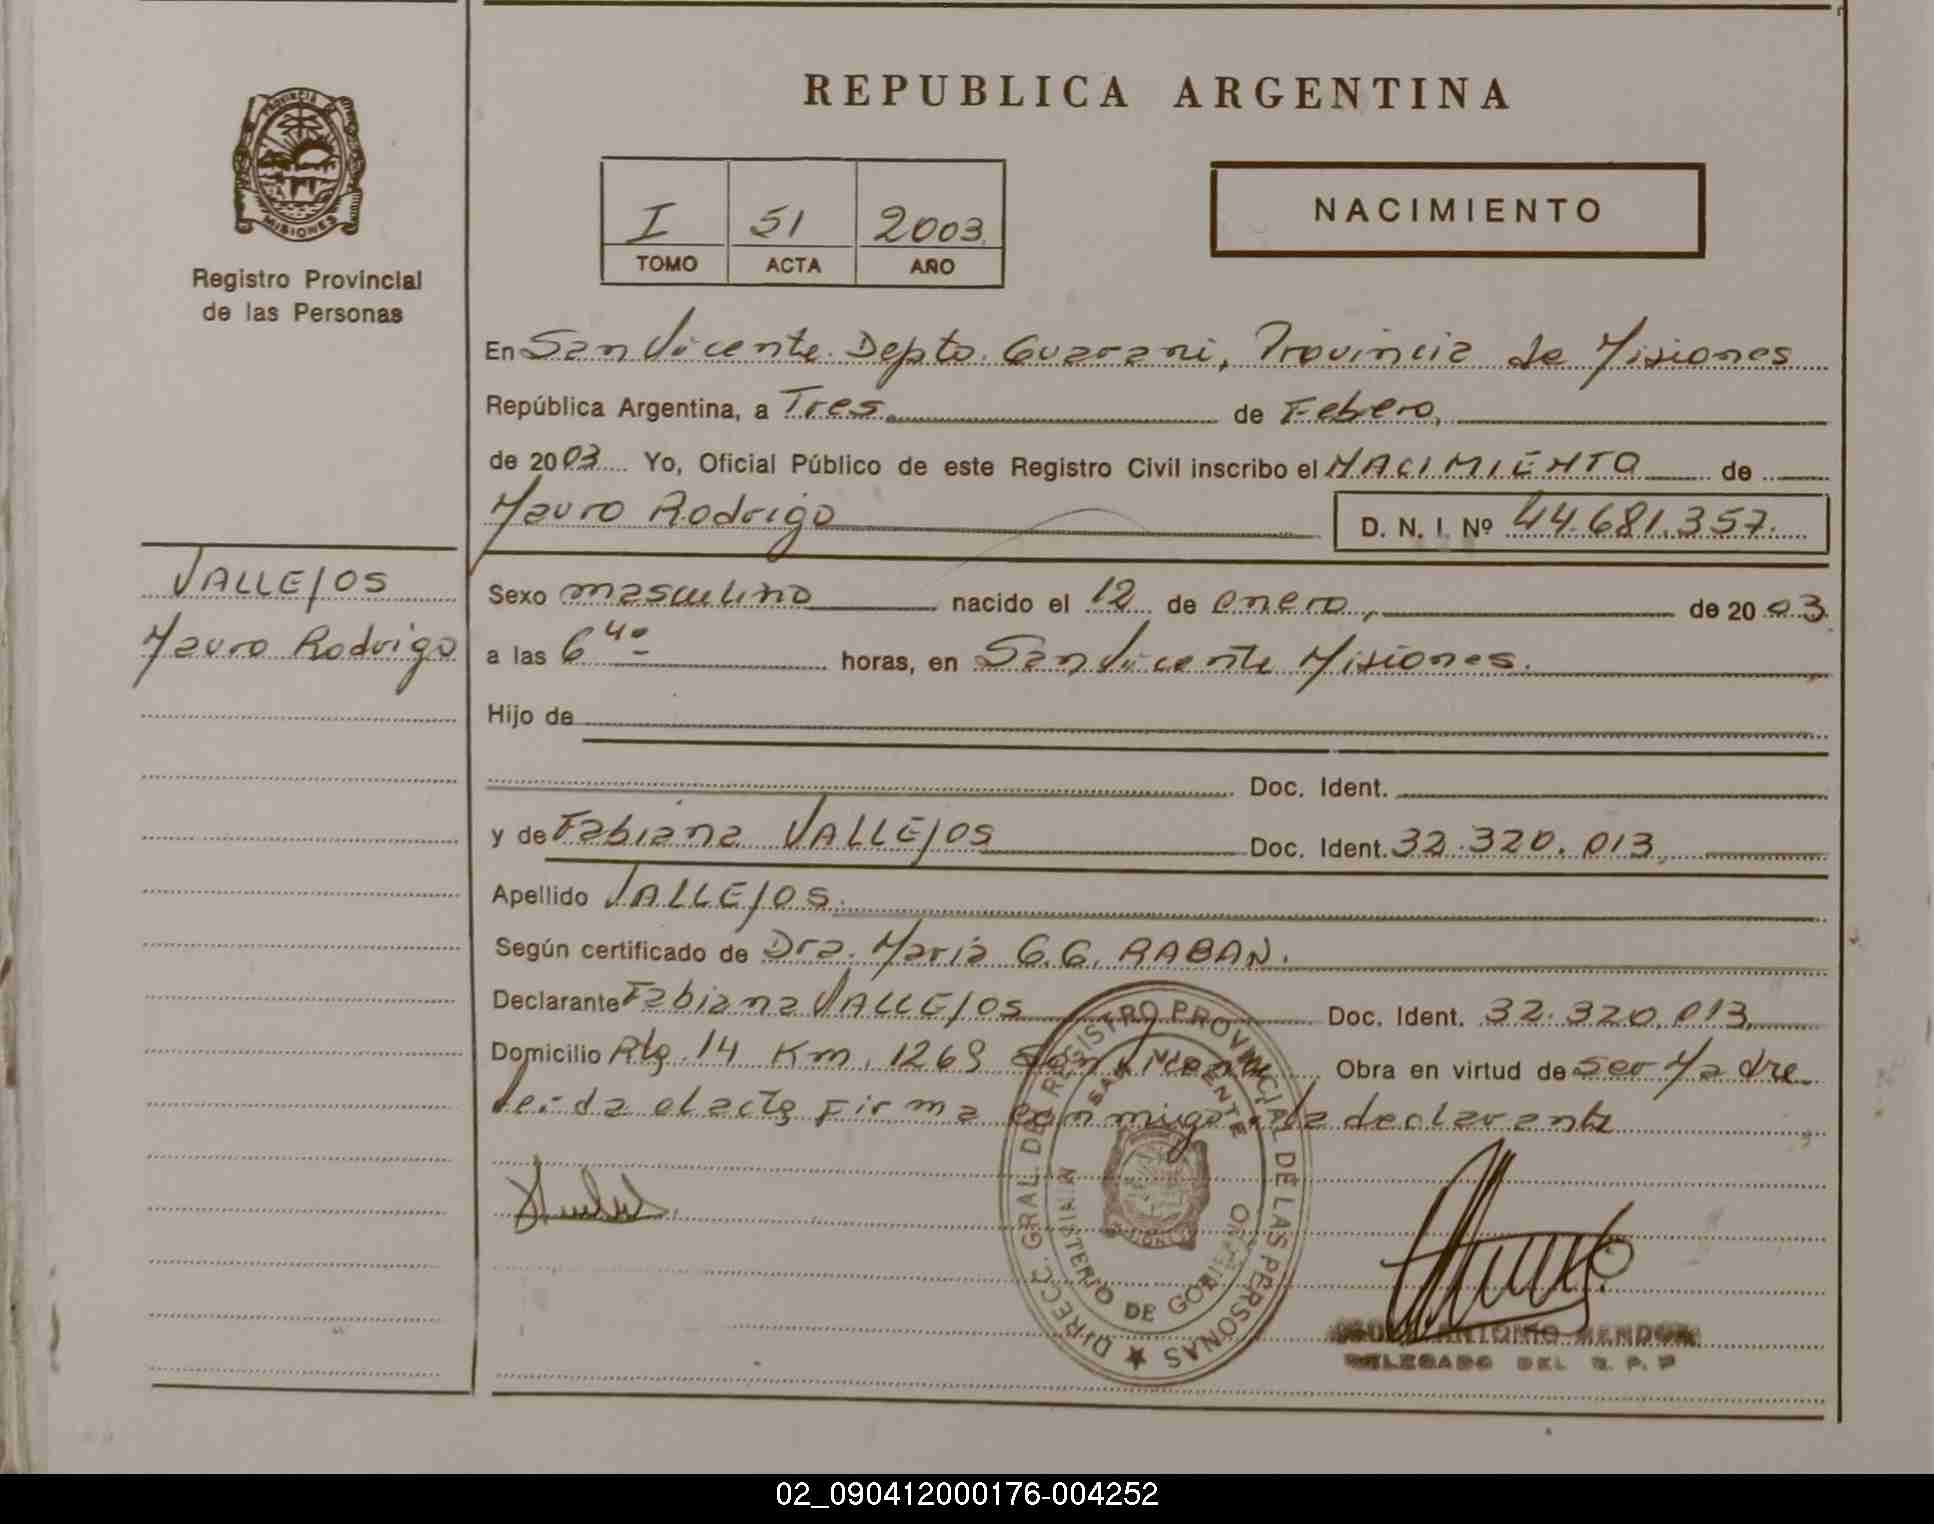 REPUBLICA ARGENTINA
PROVINCIA DE
MISIONES
Registro Provincial
de las Personas
I 51 2003
TOMO ACTA AÑO
NACIMIENTO
En San Vicente Depto. Guarani, Provincia de Misiones
República Argentina, a Tres de Febrero,
de 2003 Yo, Oficial Público de este Registro Civil inscribo el NACIMIENTO de
Mauro Rodrigo D. N. I. Nº 44.681.357.
VALLEJOS
Mauro Rodrigo
Sexo masculino nacido el 12 de enero, de 2003
a las 6 40 horas, en San Vicente Misiones.
Hijo de
Doc. Ident.
y de Fabiana VALLEJOS Doc. Ident. 32.320.013,
Apellido VALLEJOS.
Según certificado de Dra. Maria G.G. RABAN.
Declarante Fabiana VALLEJOS Doc. Ident. 32.320.013,
Domicilio Rta. 14 Km. 1269 San Vicente Obra en virtud de ser Madre
leida el acta firma conmigo la declarante
DIRECC. GRAL. DEL REGISTRO PROVINCIAL DE LAS PERSONAS
SAN VICENTE
MINISTERIO DE GOBIERNO
ANTONIO MENDOZA
DELEGADO DEL R. P. P
02_090412000176-004252